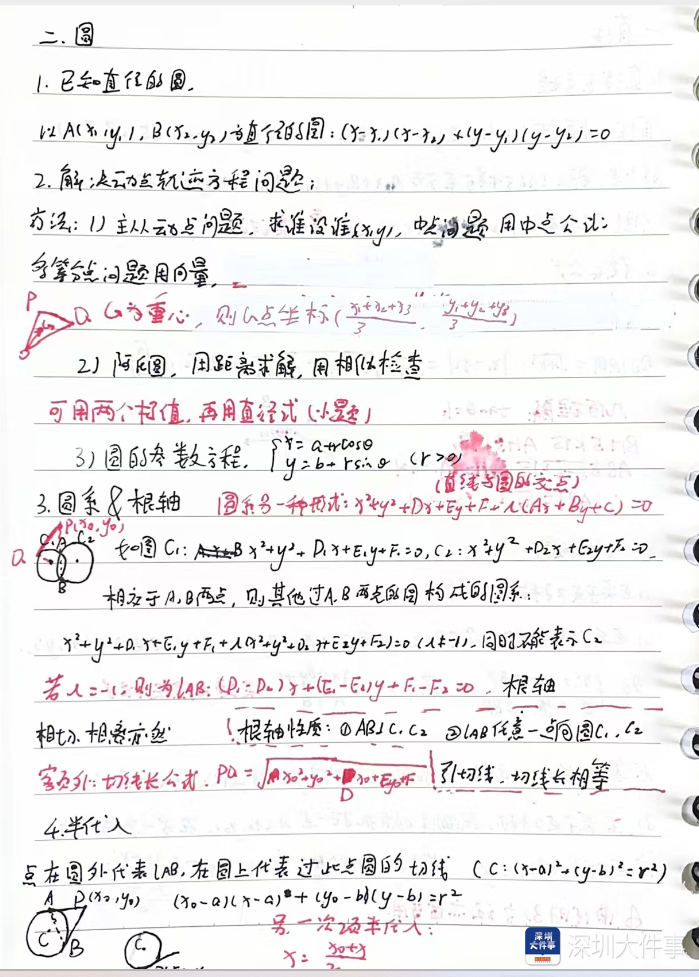 二.圆
1.已知直径的圆.
以A(x₁,y₁),B(x₂,y₂)为直径的圆:(x-x₁)(x-x₂)+(y-y₁)(y-y₂)=0
2.解决动点轨迹方程问题:
方法:1)主从动点问题,求谁设谁(x,y),中点问题用中点公式;
多等分点问题用向量,
P
Q G为重心,则G点坐标(x₁+x₂+x₃/3, y₁+y₂+y₃/3)
2)阿氏圆,用距离求解,用相似检查
可用两个极值,再用直径式(小题)
3)圆的参数方程, {x=a+rcosθ y=b+rsinθ (r>0)
(直线与圆的交点)
3.圆系&根轴 圆系另一种形式:x²+y²+Dx+Ey+F+λ(Ax+By+C)=0
C₁ A C₂ P(x₀,y₀)
Q B 如图C₁: x²+y²+D₁x+E₁y+F₁=0,C₂:x²+y²+D₂x+E₂y+F₂=0
相交于A,B两点,则其他过A.B两点的圆构成的圆系:
x²+y²+D₁x+E₁y+F₁+λ(x²+y²+D₂x+E₂y+F₂)=0(λ≠-1),同时不能表示C₂
若λ=-1,则为lAB:(D₁-D₂)x+(E₁-E₂)y+F₁-F₂=0 . 根轴
相切.相离亦然 根轴性质:①AB⊥C₁C₂ ②lAB任意一点向圆C₁、C₂
客观外:切线长公式. PQ=√x₀²+y₀²+Dx₀+Ey₀+F 引切线,切线长相等
4.半代入
点在圆外代表lAB,在圆上代表过此点圆的切线 (C:(x-a)²+(y-b)²=r²)
A P(x₀,y₀) (x₀-a)(x-a)+(y₀-b)(y-b)=r²
C B
C 另一次项半代入:
x=x₀+x/2
深圳大件事
深圳大件事